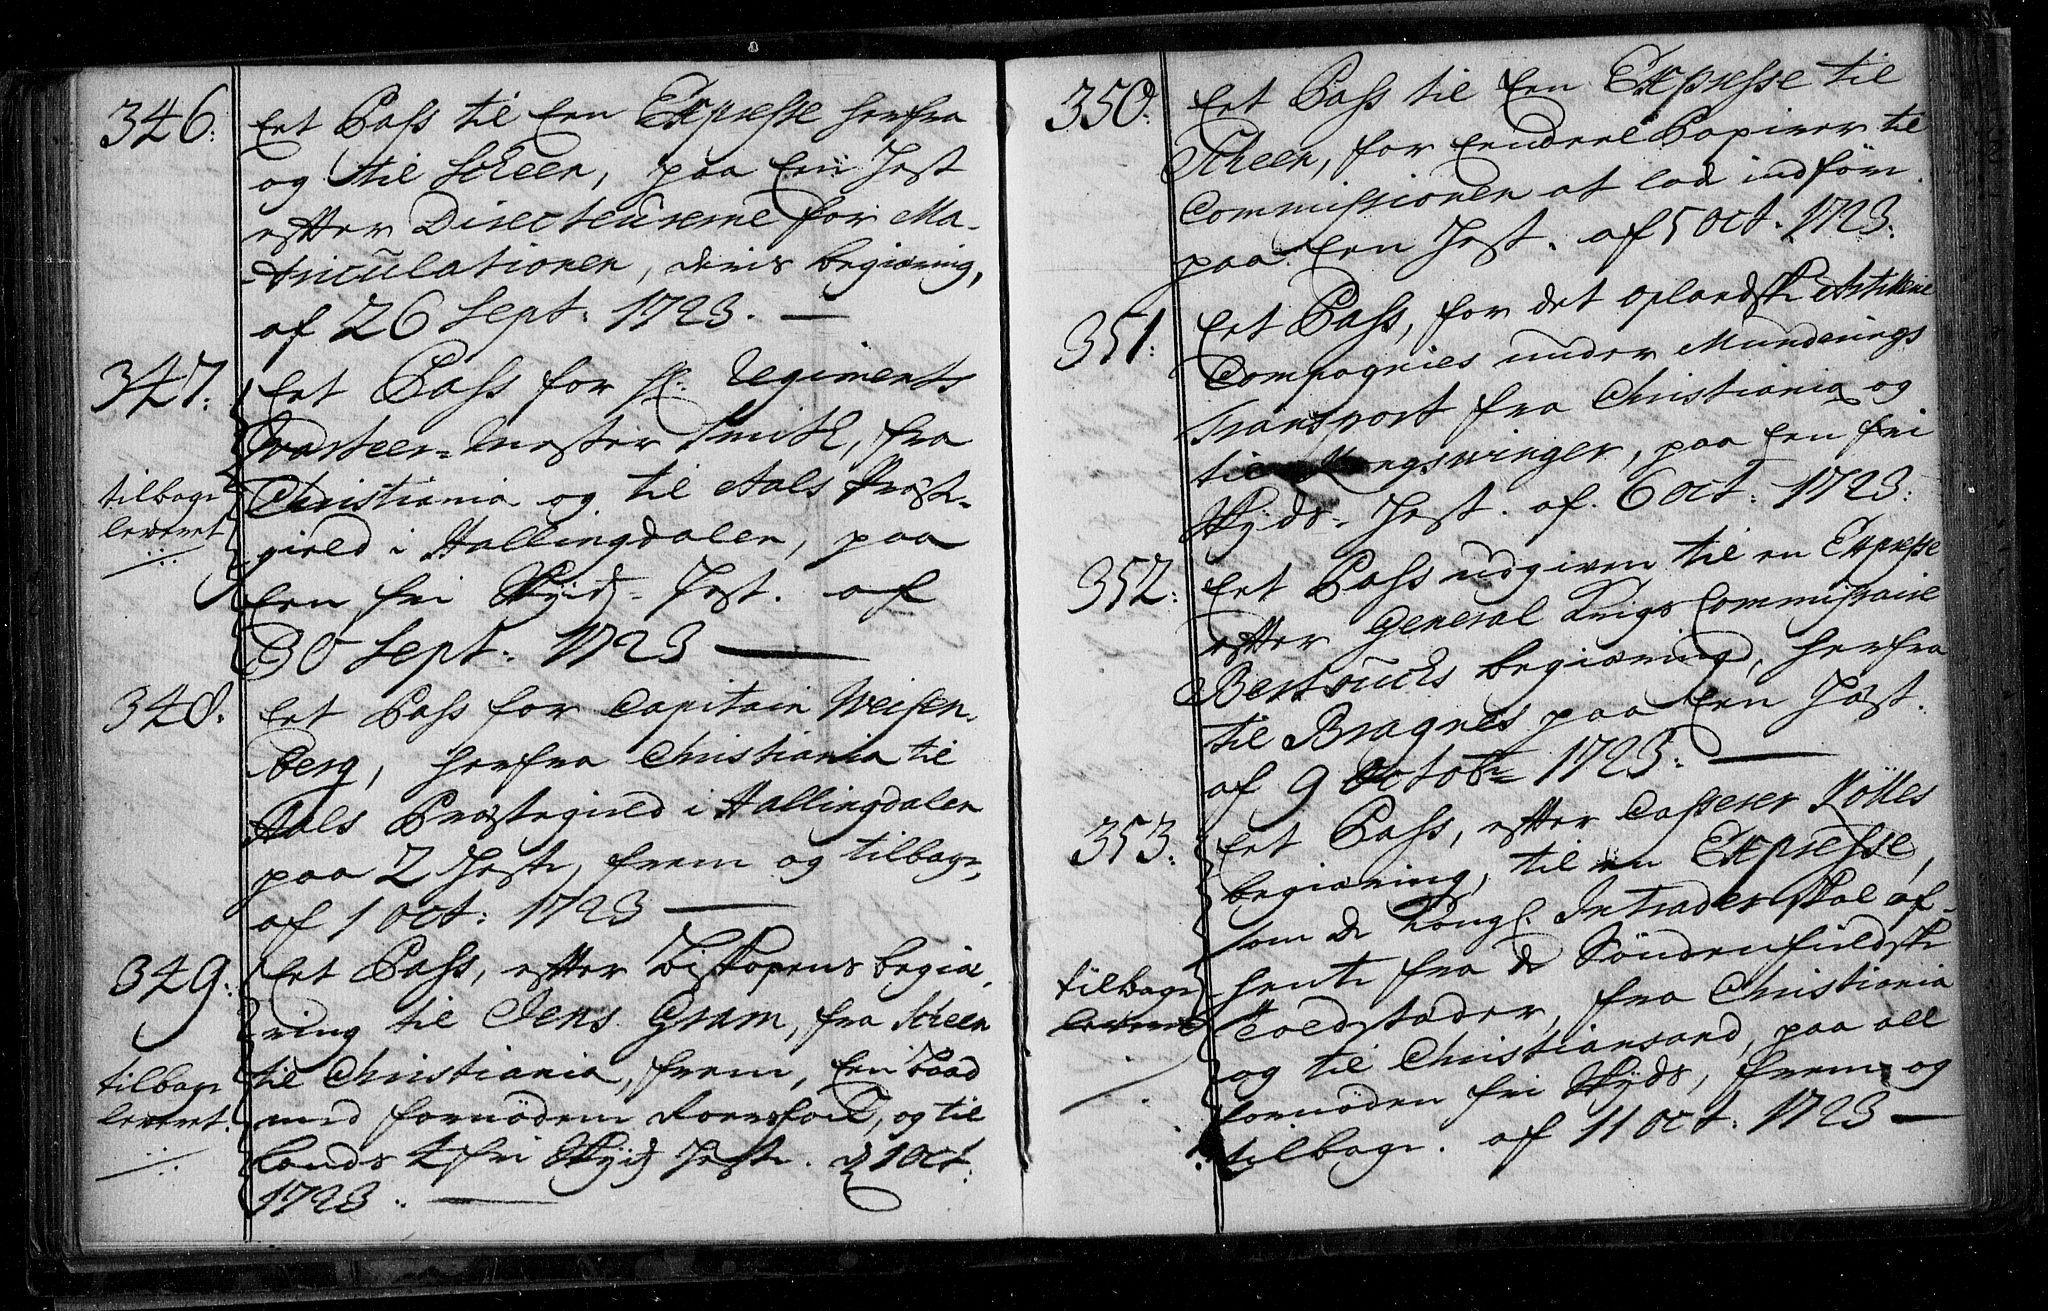 346. Eet Pass til Een Expresse herfra
og til Scheen, paa Een Hest
efter Directeurerne for Ma-
triculationen, deris begiæring,
af 26 Sept: 1723. —
347. Eet Pass for Hr: Regiments
Qvarteer-Mester Smith, fra
Christiania og til Aals Præste-
gield i Hallingdalen, paa
Een fri Skyds-Hest. af
30 Sept: 1723 —
tilbage
leveret
348. Eet Pass for Capitain Weisen-
berg, herfra Christiania til
Aals Præstegield i Hallingdalen
paa 2 Heste, frem og tilbage,
af 1 Oct: 1723 —
349. Eet Pass, efter Biskopens begiæ-
ring til Jens Gram, fra Scheen
til Christiania, frem, Een Baad
med fornøden Roersfolk, og til
Lands 4 fri Skyds Heste. d 1 Oct:
1723. —
tilbage
leveret.
350. Eet Pass til Een Expresse til
Scheen, for Eendeel Papirer til
Commissionen at lade indføre.
paa Een Hest. af 5 Oct. 1723.
351. Eet Pass, for det oplandske Artillerie
Compagnies under Munderings
Transport fra Christiania og
til Kongswinger, paa Een fri
Skyds-Hest. af. 6 Oct: 1723.
352. Eet Pass udgiven til en Expresse
efter General Krigs Commissaire
begiæring, herfra
til Bragnes paa Een Hest.
af 9 Octobr 1723. —
353. Eet Pass, efter Casserer
begiæring, til en Expresse,
som de Kongl. Intrader skal af-
hente fra de Søndenfieldske
Toldstæder, fra Christiania
og til Christiansand, paa all
fornøden fri Skyds, frem og
tilbage. af 11 Oct. 1723 —
tilbage
leveret